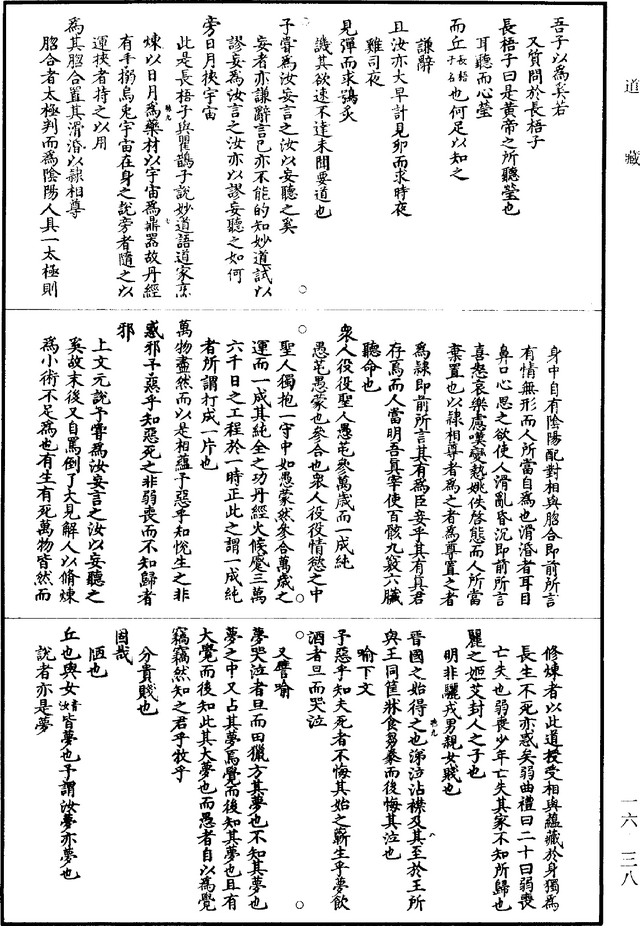 道藏
吾子以為奚若
又質問於長梧子
長梧子曰是黃帝之所聽瑩也
耳聽而心瑩
而丘長梧子名也何足以知之
謙辭
且汝亦大早計見卵而求時夜
雞司夜
見彈而求鴞炙
譏其欲速不達未聞要道也
予嘗為汝妄言之汝以妄聽之奚
妄者亦謙辭言已亦不能的知妙道試以
謬妄為汝言之汝亦以謬妄聽之如何
旁日月挾宇宙
此是長梧子與瞿鵲子說妙道語道家烹
煉以日月為藥材以宇宙為鼎器故丹經
有手搦烏兔宇宙在身之說旁者隨之以
運挾者持之以用
為其脗合置其滑涽以隸相尊
脗合者太極判而為陰陽人具一太極則
身中自有陰陽配對相與脗合即前所言
有情無形而人所當自為也滑涽者耳目
鼻口心思之欲使人滑亂昏沉即前所言
喜怒哀樂慮嘆變慹姚佚啓態而人所當
棄置也以隸相尊者為之者為尊置之者
為隸即前所言其有為臣妾乎其有真君
存焉而人當明吾真宰使百骸九竅六臟
聽命也
衆人役役聖人愚芚參萬歲而一成純
愚芚愚蒙也參合也衆人役役情慾之中
聖人獨抱一守中如愚蒙然參合萬歲之
運而一成其純全之功丹經火候攢三萬
六千日之工程於一時正此之謂一成純
者所謂打成一片也
萬物盡然而以是相蘊予惡乎知悅生之非
惑邪予惡乎知惡死之非弱喪而不知歸者
邪
上文元說予嘗為汝妄言之汝以妄聽之
奚故末後又自罵倒了大見解人以脩煉
為小術不足為也有生有死萬物皆然而
修煉者以此道授受相與蘊藏於身獨為
長生不死亦惑矣弱曲禮曰二十曰弱喪
亡失也弱喪少年亡失其家不知所歸也
麗之姬艾封人之子也
明非驪戎男親女賤也
晉國之始得之也涕泣沾襟及其至於王所
與王同筐牀食芻豢而後悔其泣也
喻下文
予惡乎知夫死者不悔其始之蘄生乎夢飲
酒者旦而哭泣
又譬喻
夢哭泣者旦而田獵方其夢也不知其夢也
夢之中又占其夢焉覺而後知其夢也且有
大覺而後知此其大夢也而愚者自以為覺
竊竊然知之君乎牧乎
分貴賤也
固哉
陋也
丘也與女皆夢也予謂汝夢亦夢也
說者亦是夢
一六·三八